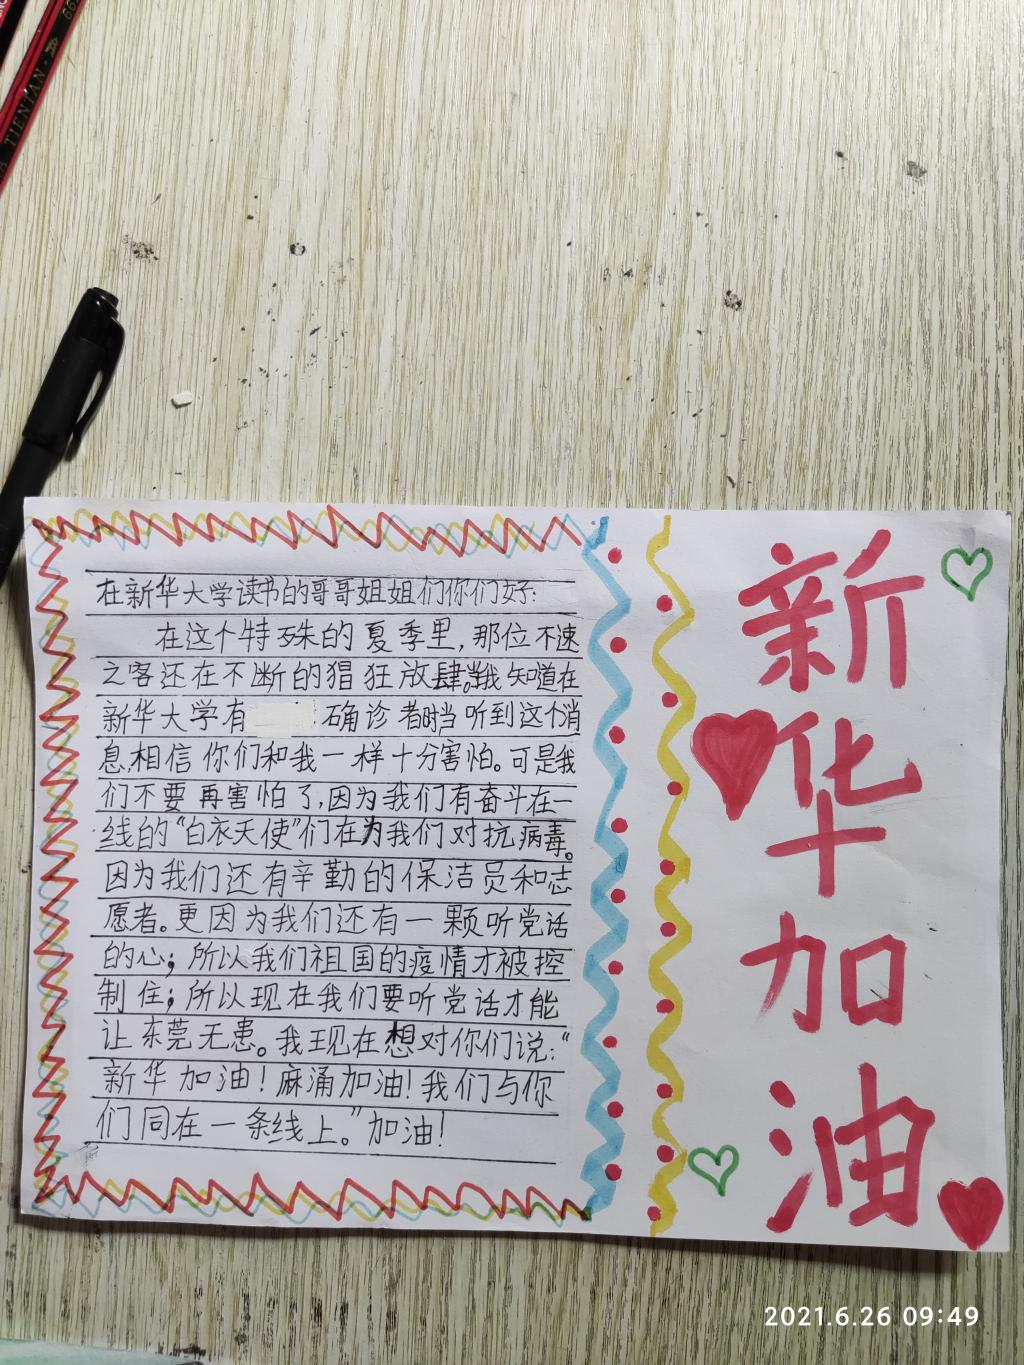 TIENTAN
在新华大学读书的哥哥姐姐们你们好:
在这个特殊的夏季里,那位不速
之客还在不断的猖狂放肆。当我知道在
新华大学有 确诊者时当听到这个消
息,相信你们和我一样十分害怕。可是我
们不要再害怕了,因为我们有奋斗在一
线的“白衣天使”们在为我们对抗病毒。
因为我们还有辛勤的保洁员和志
愿者。更因为我们还有一颗听党话
的心;所以我们祖国的疫情才被控
制住;所以现在我们要听党话才能
让东莞无恙。我现在想对你们说:“
新华加油!麻涌加油!我们与你
们同在一条线上。”加油!
新
华
加
油
2021.6.26 09:49